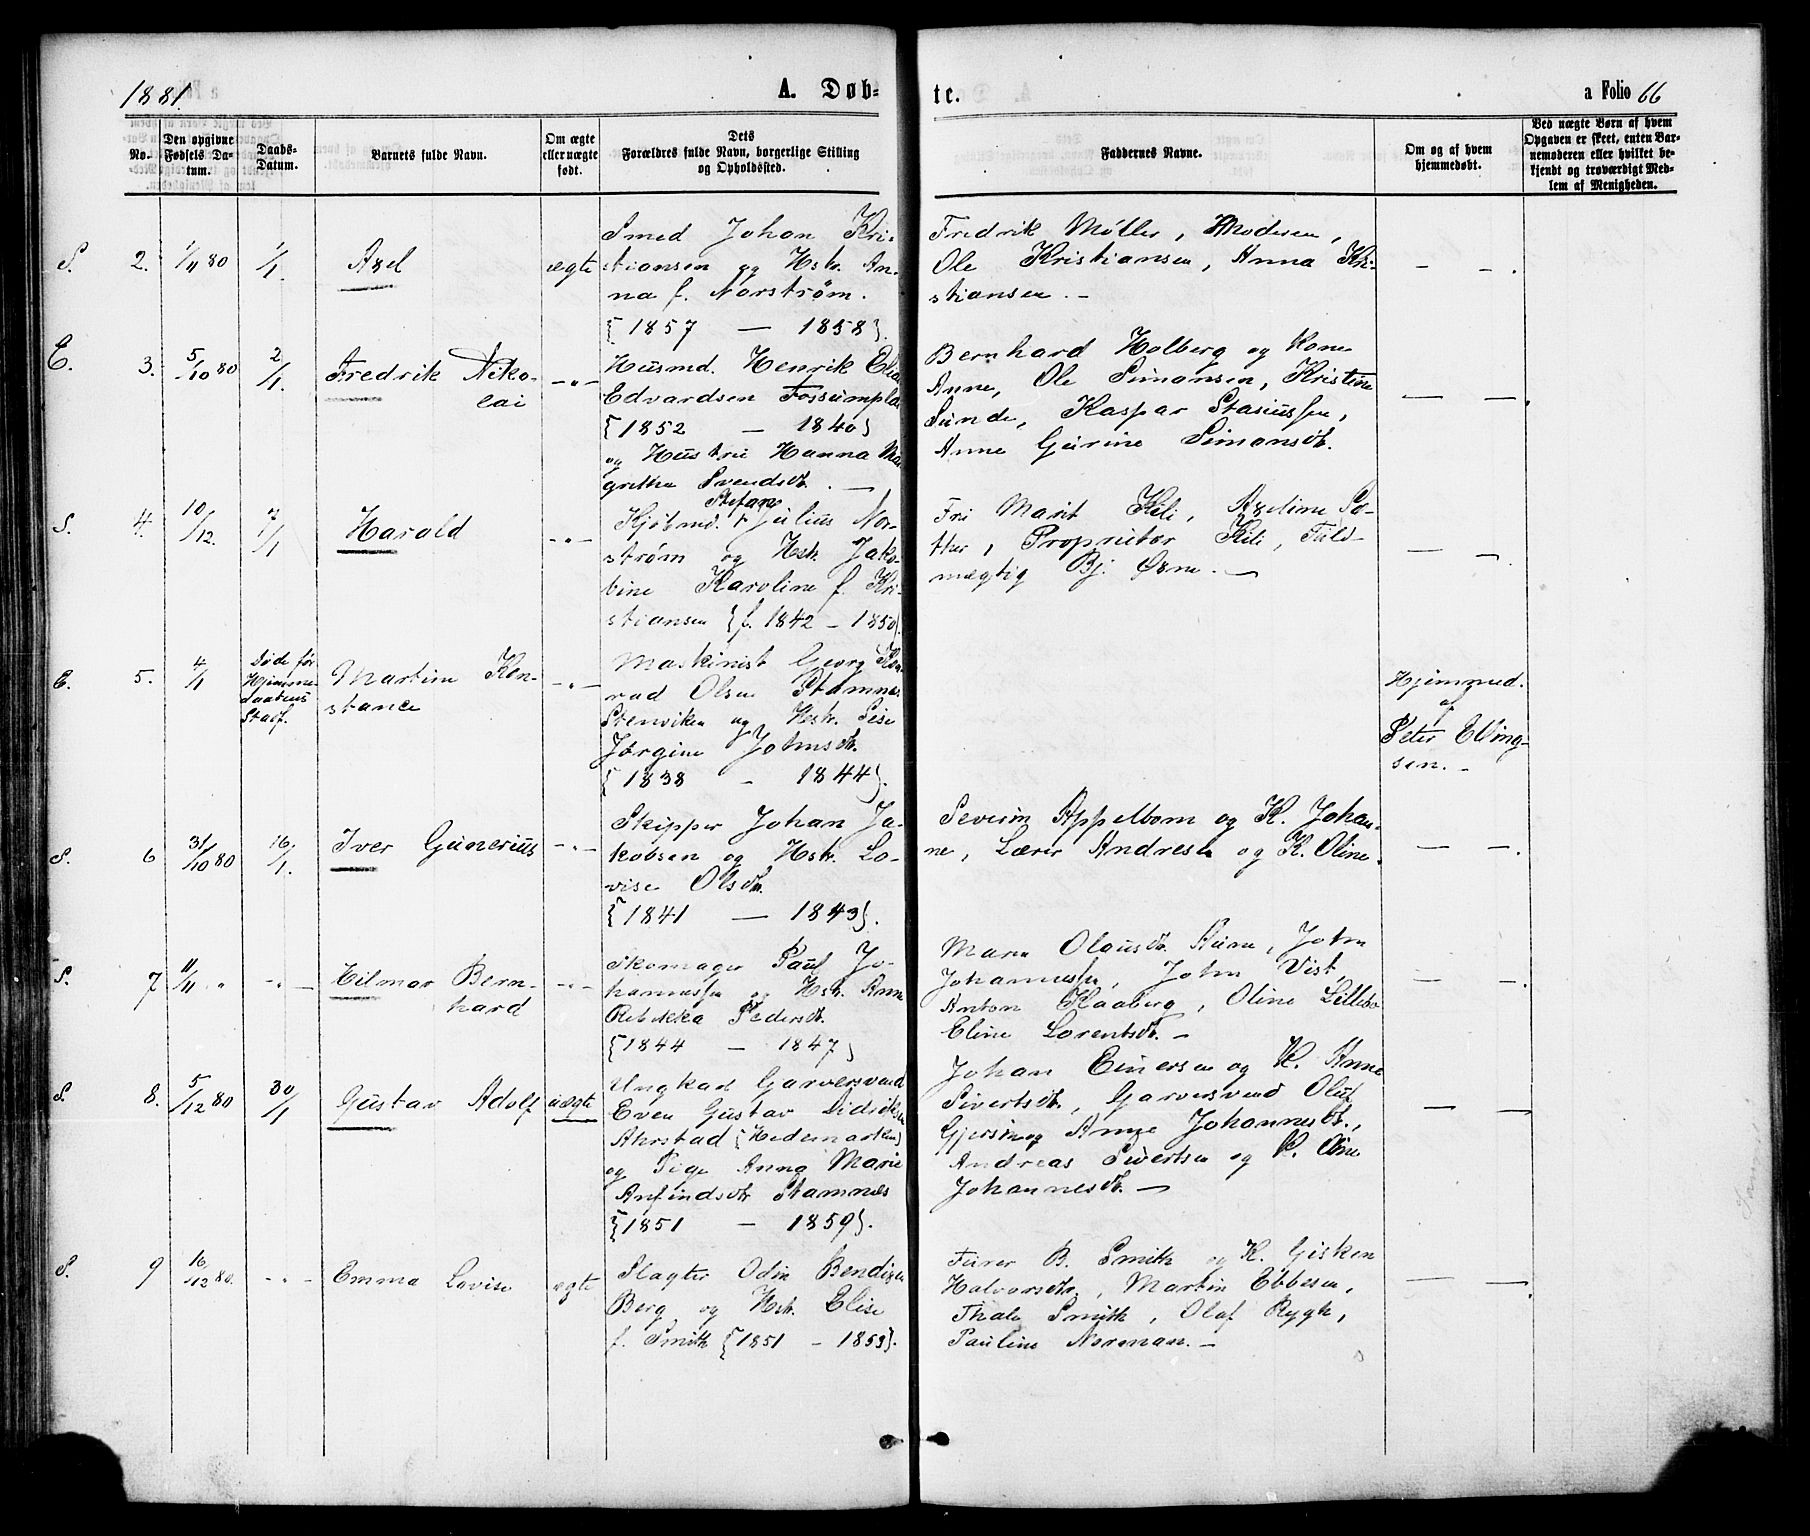 1881. A. Døb- te. a Folio 66
No. Den opgivne Fødsels Datum. Daabs-Datum. Barnets fulde Navn. Om ægte eller uægte født. Dets Forældres fulde Navn, borgerlige Stilling og Opholdssted. Faddernes Navne. Om og af hvem hjemmedøbt. Ved uægte Børn af hvem Opgaven er skeet, enten Barnemoderen eller hvilket bekjendt og troværdigt Medlem af Menigheden.
S. 2. 1/11 80 1/1. Axel ægte
Smed Johan Kri-
stiansen og Hstr. An-
na f. Norstrøm.
{1857 — 1858}.
Fredrik Møller,
Ole Kristiansen, Anna Kri-
stiansen. —
— —.
E. 3. 5/10 80 2/1. Fredrik Niko-
lai —"—
Husmd. Henrik Elias
Edvardsen Fossumpla
{1852 — 1840}
og Hustru Hanna Mar
grethe Svendsdt. —
Bernhard Holberg og Kone
Anne, Ole Simonsen, Kristine
Sunde, Kaspar Stasiussen,
Anne Gurine Simonsdt.
— —.
S. 4. 10/12. 7/1 Harald —"—
Stefan
Kjøbmd. Julius Nor-
strøm og Hstr. Jako-
bine Karoline f. Kri-
stiansen {f. 1842 – 1850}.
Frk Marit Kili, Axeline So-
ther, Proprietær Kili, Fuld-
mægtig Bj. Øxne. —
— —.
E. 5. 4/1 Døde før
Hjemme-
daabens
Stadf.
Martin Kon-
stance —"—
Maskinist Georg Kon
rad Olsen Stamnes
Stenviken og Hstr. Sise
Jørgine Johnsdt.
{1838 – 1844}.
Hjemmed.
af
Peter Elling-
sen. -
S. 6 31/10 80 16/1. Iver Gunerius —"—
Skipper Johan Ja-
kobsen og Hstr. Lo-
vise Olsdt.
{1841 — 1843}.
Severin Appelbom og K. Johan-
ne, Lærer Andresen og K. Oline.
— —.
S. 7 11/11 " —"— Hilmar Bern-
hard —"—
Skomager Paul Jo-
hannessen og Hstr. Anne
Rebekka Pedersdt.
{1844 – 1847}
Maren Olausdt. Aune, John
Johannessen, John Vist,
Anton Kaaberg, Oline Lillebo
Eline Lorentsdt. —
— —.
S. 8. 5/12 80 30/1 Gustav Adolf uægte
Ungkarl Garversvend
Even Gustav Didriksen
Ahrstad (Hedemarken)
og Pige Anna Marie
Anfindsdtr Stamnes
{1851 – 1859}.
Johan Einersen og K. Anne
Sivertsdt., Garversvend Oluf
og Anne Johannesdt.,
Andreas Sivertsen og K. Oline
Johannesdt. —
— —.
S. 9 16/12 80. —"— Emma Lovise ægte
Slagter Odin Bendixen
Berg og Hstr. Elise
f. Smith {1851 – 1853}.
Feirer B. Smith og K. Gisken
Halvorsdtr., Martin Ebbesen,
Thale Smith, Olaf Rygh,
Pauline Norman. —
— —.